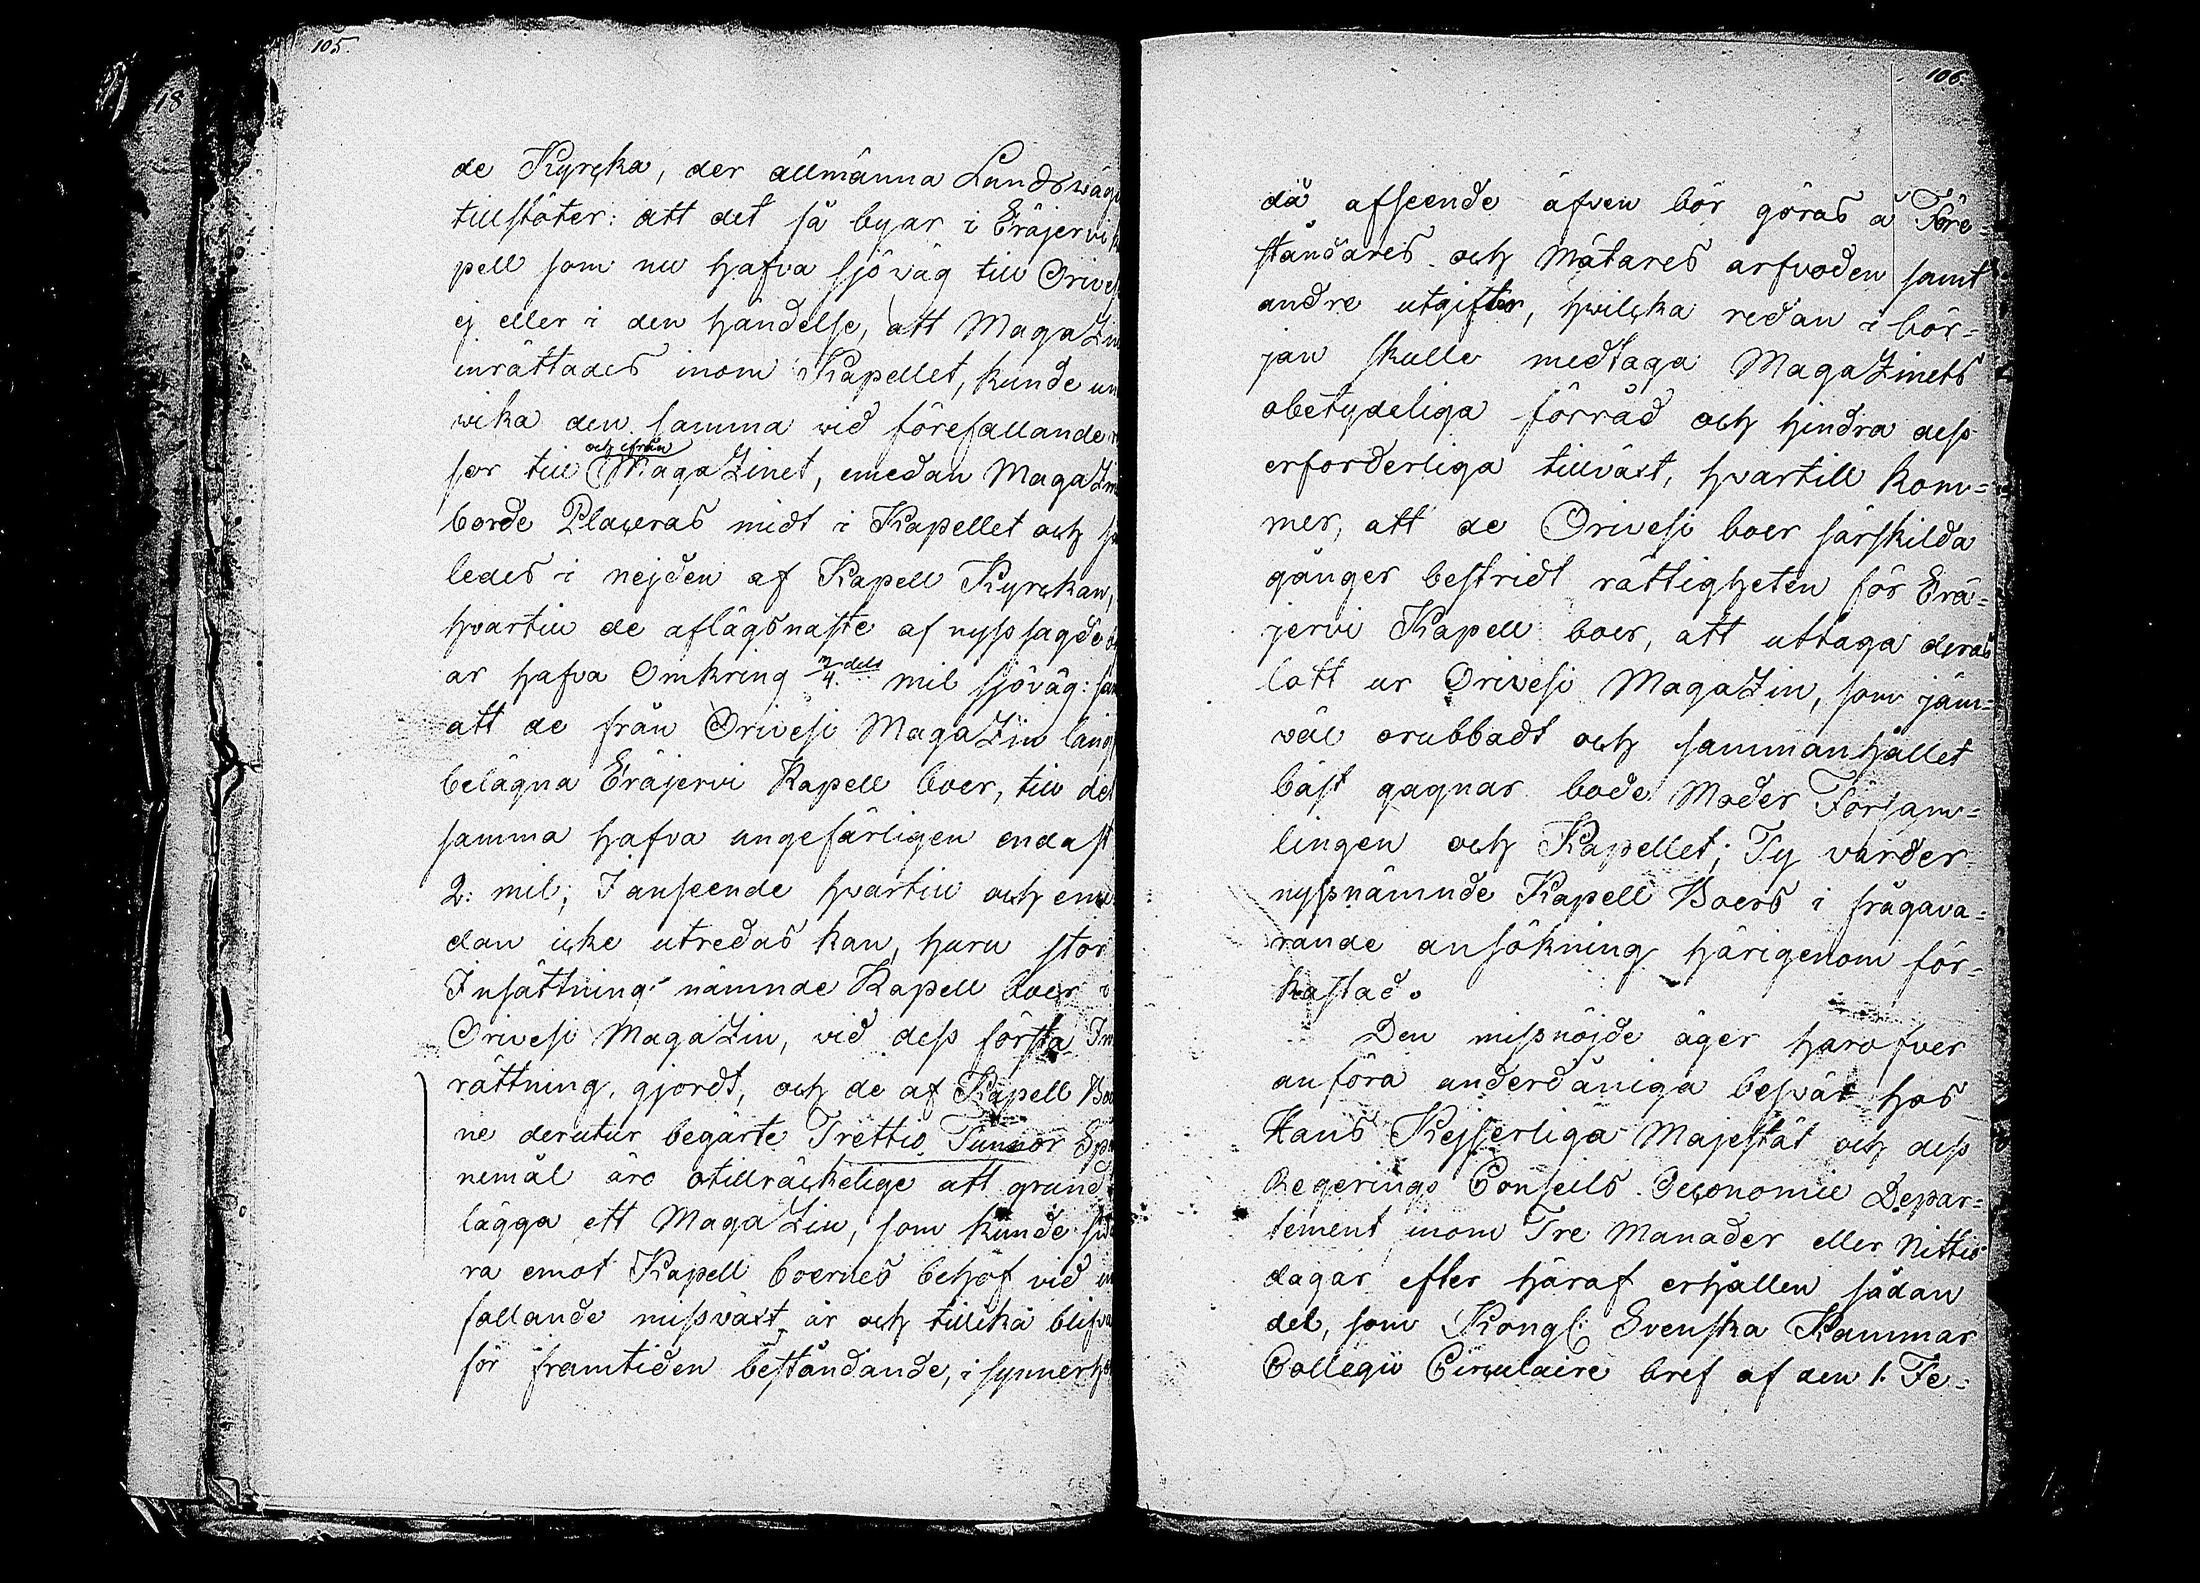 105.
18
de Kyrcka, der allmänna Landsväge
tillstöter: att det så byar i Eräjervi
pell som nu hafva sjöväg till Orive
ej eller i den händelse, att MagaZin
inrättades inom Kapellet, kunde un
vika den samma vid förefallande
och ifrån
sor till MagaZinet, emedan MagaZin
borde Placeras midt i Kapellet och
ledes i nejden af Kapell Kyrckan,
hvartill de aflägsnaste af nyss sagde
ar hafva Omkring 3/4 dels mil sjöväg:
att de från Orivesi MagaZin läng
belägna Eräjervi Kapell boer, till det
samma hafva ungefärligen endast
2: mil; I anseende hvartill och eme
dan icke utredas kan, huru stor
Insättning nämnde Kapell boer i
Orivesi MagaZin, vid dess första In
rättning, gjordt, och de af Kapell Bo
ne derutur begärte Trettio Tunnor Sp
nemål äro otillräckelige att grund
lägga ett MagaZin, som kunde
ra emot Kapell boernes behof vid
fallande missväxt år och tillika blifva
för framtiden beståndande, i synnerhe
106.
då afseende äfven bör göras å Före=
ståndares och Mätares arfvoden samt
andre utgifter, hvilcka redan i bör=
jan skulle medtaga MagaZinets
obetydeliga förråd och hindra dess
erforderliga tillväxt, hvartill kom=
mer, att de Orivesi boer särskilda
gånger bestridt rättigheten för Erä=
jervi Kapell boer, att uttaga deras
lott ur Orivesi MagaZin, som jäm=
väl orubbadt och sammanhållet
bäst gagnar både Moder Försam=
lingen och Kapellet; Ty varder
nyssnämnde Kapell Boers i frågava=
rande ansökning härigenom för=
kastad.
Den missnöjde äger härofver
anföra underdåniga besvär hos
Hans Kejserliga Majestät och dess
Regerings Conseils Oeconomie Depar=
tement inom Tre Månader eller Nittio
dagar efter häraf erhållen sådan
del, som Kongl: Svenska Kammar
Collegii Circulaire bref af den 1. Fe=